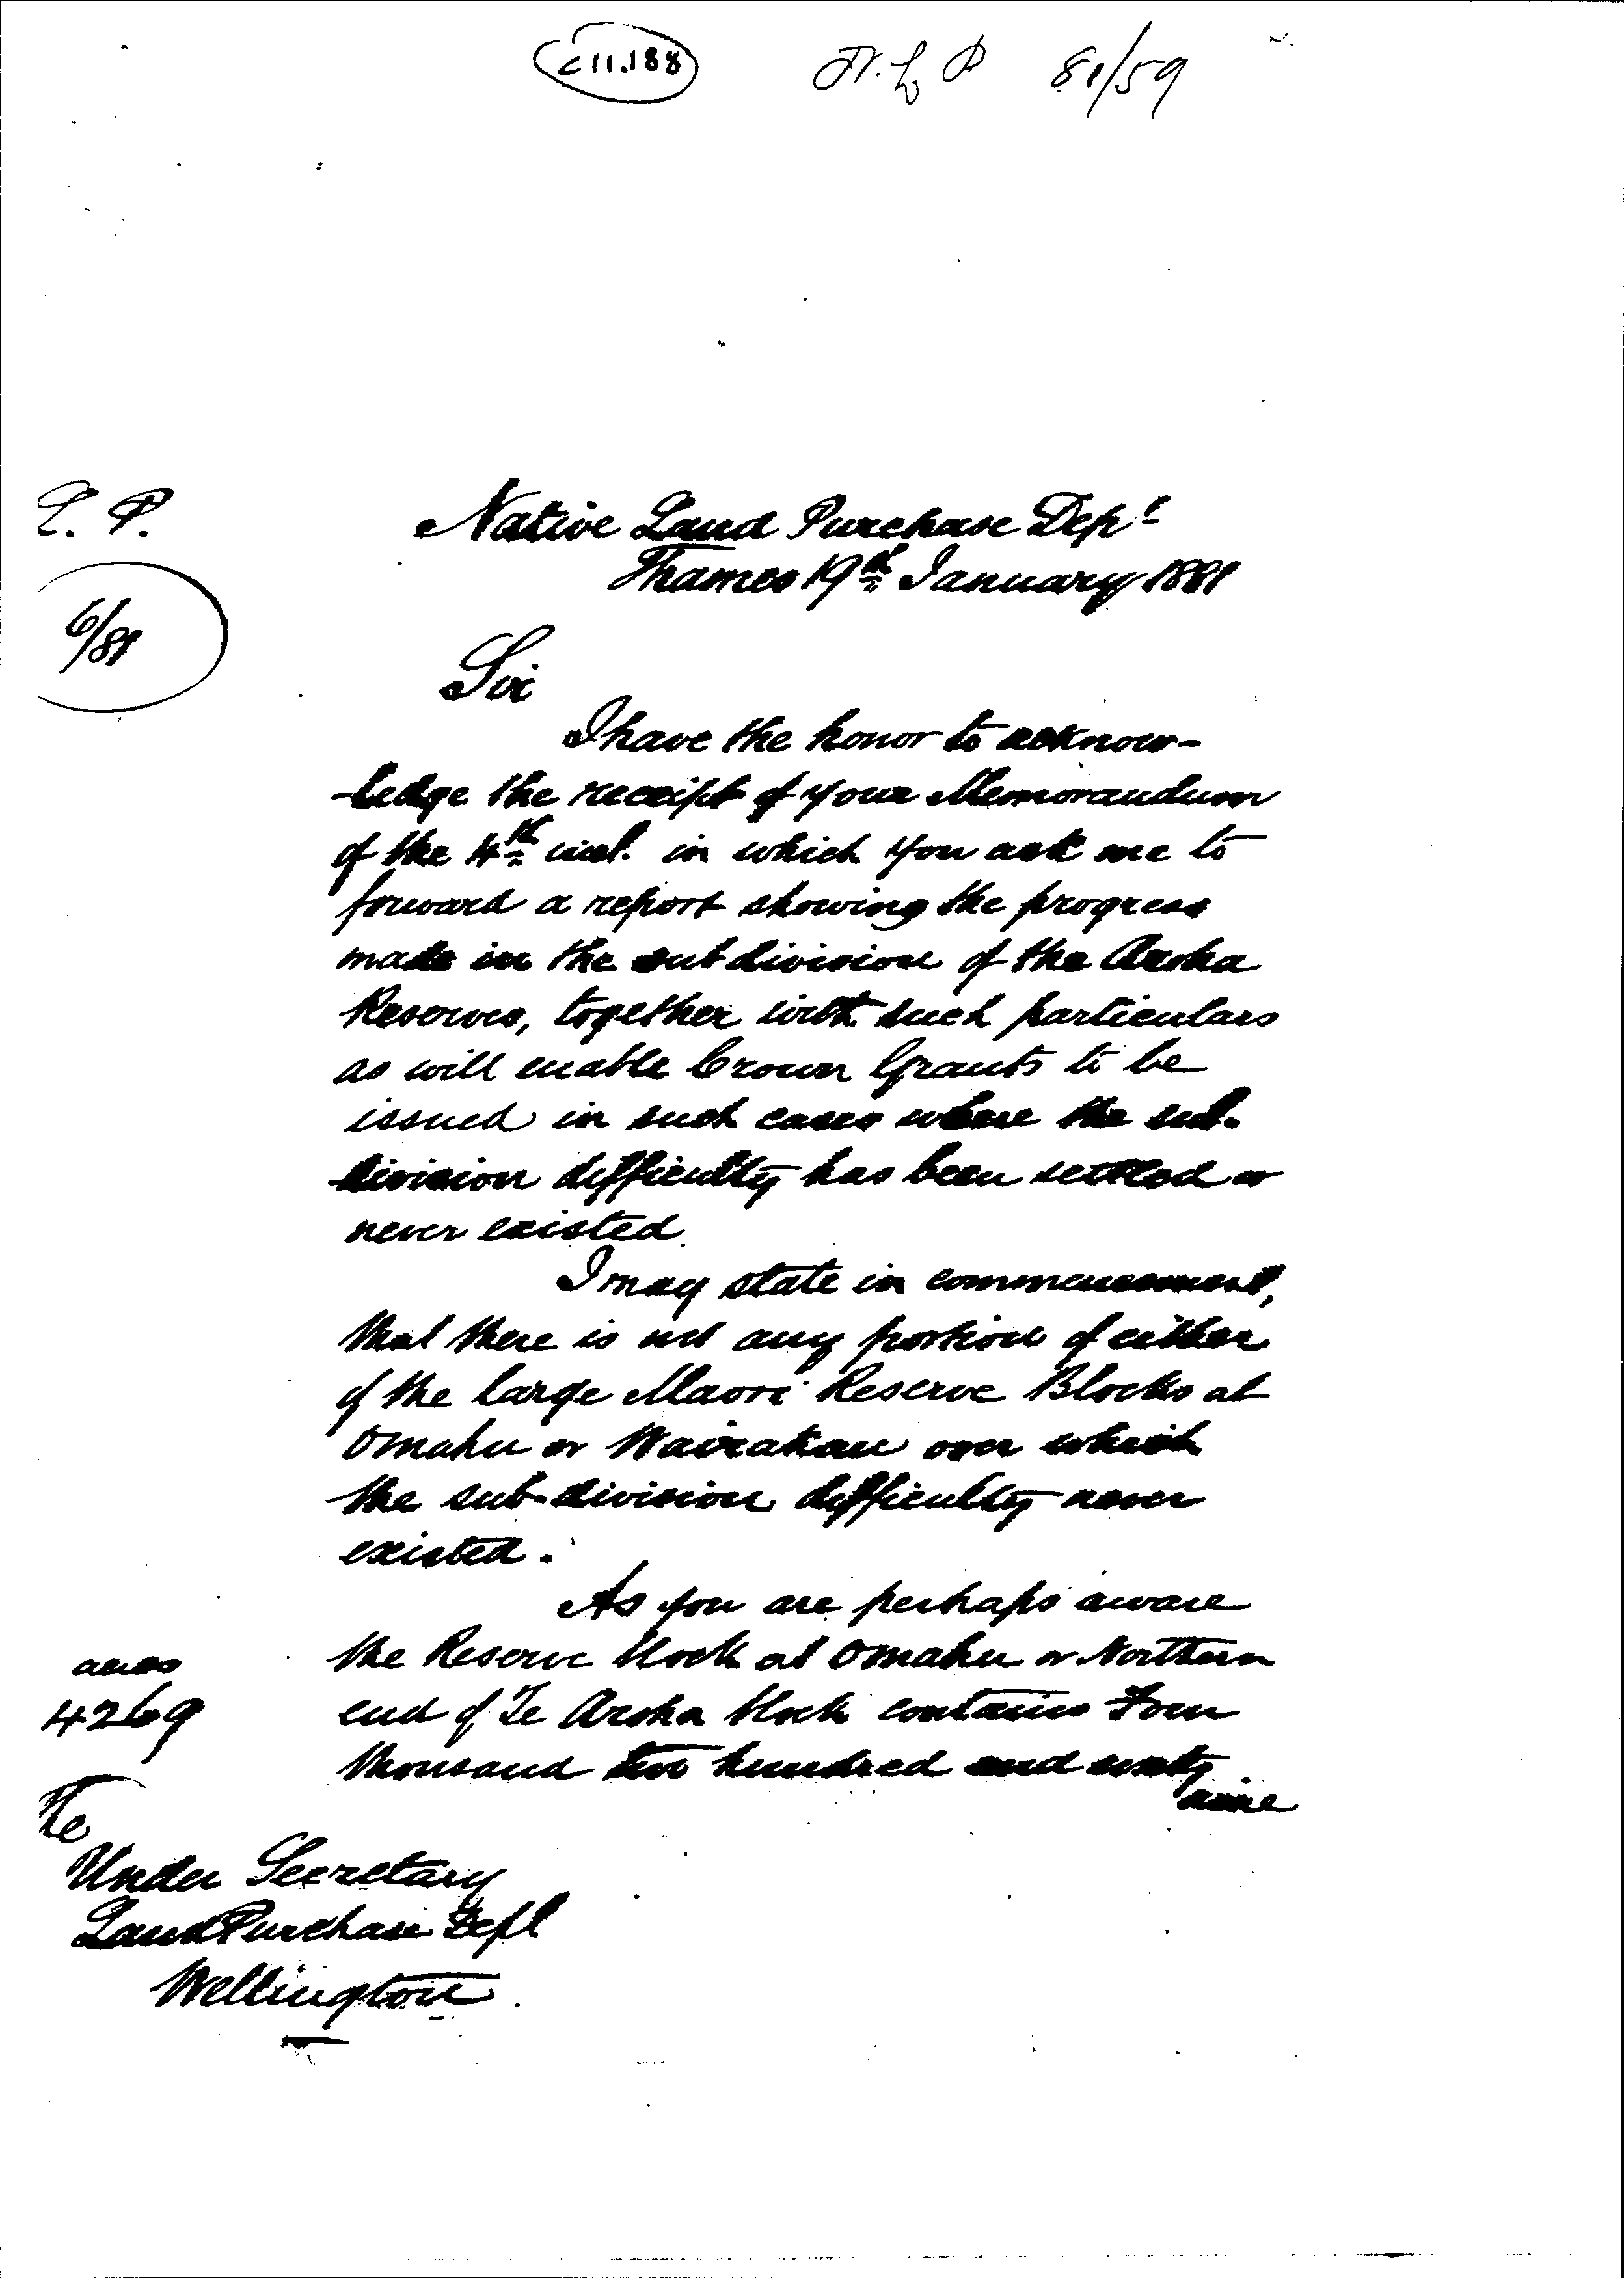 C11.188
N.L.P 81/59
L.P.
6/81
Native Land Purchase Dept
Thames 19th January 1881
Sir
I have the honor to acknow-
-ledge the receipt of your Memorandum
of the 4th inst. in which you ask me to
forward a report showing the progress
made in the subdivision of the Aroha
Reserves, together with such particulars
as will enable Crown Grants to be
issued in such cases where the sub-
-division difficulty has been settled or
never existed.
I may state in commencement,
that there is not any portion of either
of the large Maori Reserve Blocks at
Omahu or Wairakau over which
the sub-division difficulty never
existed.
As you are perhaps aware
the Reserve block at Omahu or Northern
end of Te Aroha block contains Four
thousand two hundred and sixty
nine
acres
4269
The
Under Secretary
Land Purchase Dept
Wellington.